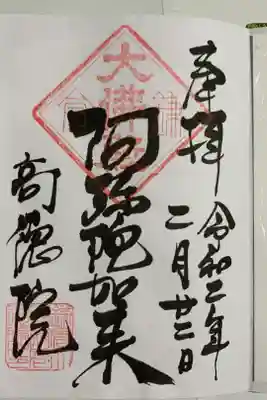 奉拝
令和二年
二月廿二日
大佛
阿弥陀如来
高徳院